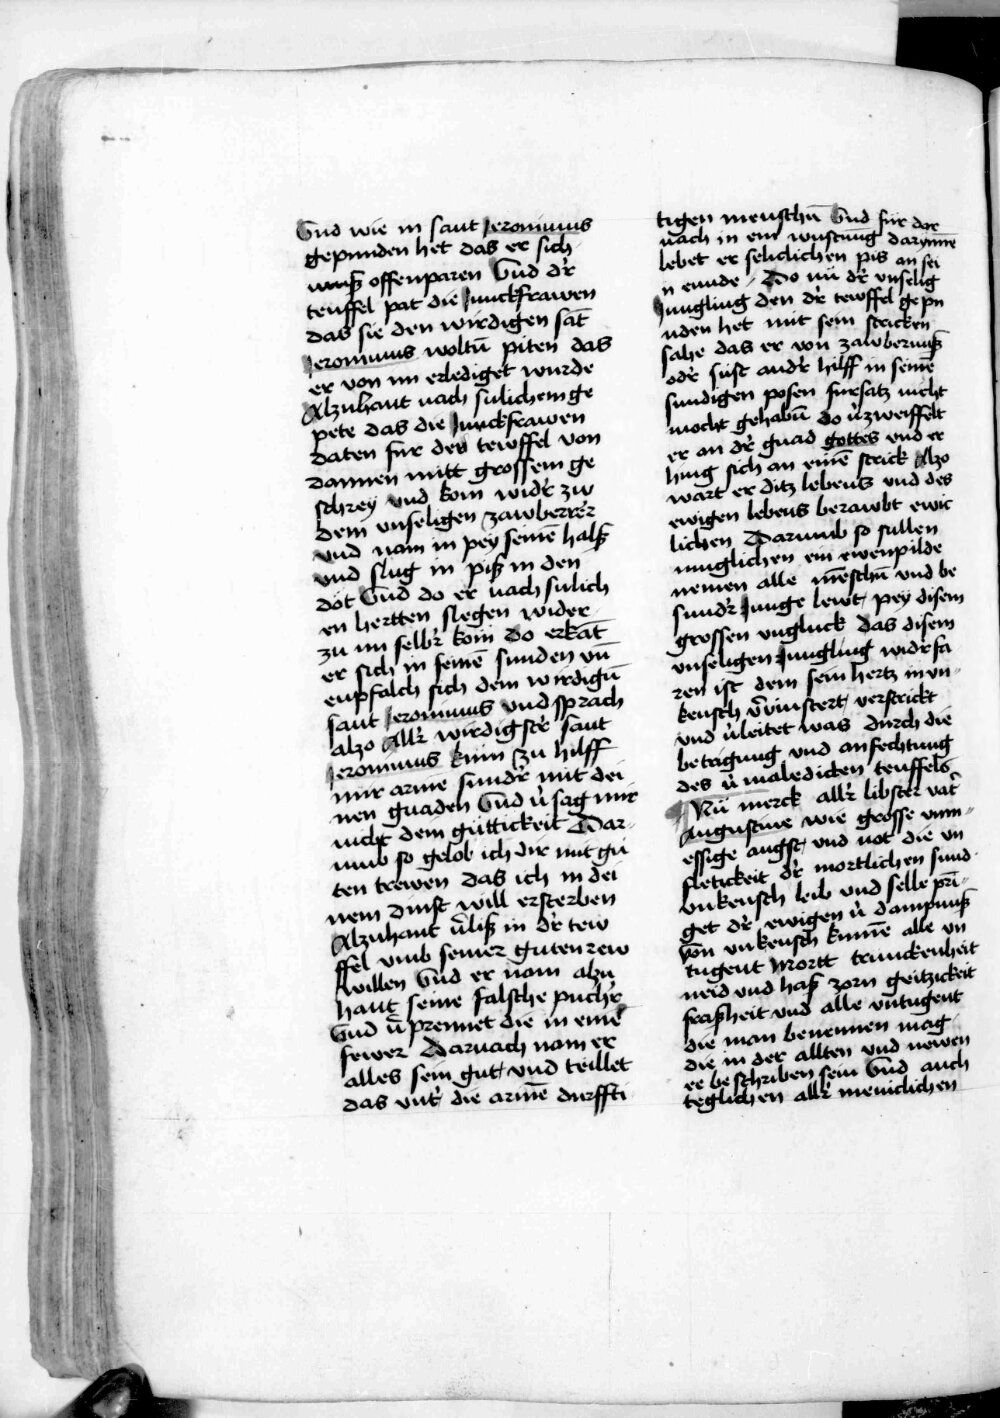 Vnd wie in sant Jeronimus
gepunden het das er sich
muß offenparen Vnd dr̓
teuffel pat die Junckfrawen
das sie den wirdigen sāt
Jeronimus woltū piten das
er von im erlediget wurde
Alzuhant nach sulichem ge
pete das die Junckfrawen
daten fur den tewffel von
dannen mitt grossem ge
schrey vnd kom widr̓ zw
dem vnseligen zawberrer
vnd nam in pey seinē halß
vnd slug in piß in den
dot Vnd do er nach sulich
en hertten slegen wider
zu im selbr̓ kom do erkāt
er sich in seinē sunden vn̄
enpfalch sich dem wirdigū
sant Jeronimus vnd sprach
alzo Allr̓ wirdigstr̓ sant
Jeronimus kum zu hilff
mir arme sundr̓ mit dei
nen gnaden Vnd v̓ sag mir
nicht dem guttickeit Dar-
umb so gelob ich dir mit gu
ten trewen das ich in dei
nem dinst will ersterben
Alzuhant v̓liß in dr̓ tew
ffel vmb seiner guten rew
willen Vnd er nam alzu
hant seine falsche puchr̓
Vnd v̓ prennet die in einē
fewer Darnach nam er
alles sein gut vnd teillet
das vnt̓ die armē durffti
tigen menschū Vnd fur dar
nach in ein wustnūg darynnē
lebet er seliclichen pis an sei
n ennde · Do nū dr̓ vnselig
Jungling den dr̓ tewffel gepu
nden het mit sein stricken
sahe das er von zawbernuß
odr̓ sust andr̓ hilff in seinē
sundigen posen fursatz nicht
mocht gehabū do v̓zweiffelt
er an dr̓ gnad gottes vnd er
hing sich an einē strick Alzo
wart er ditz lebens vnd des
ewigen lebens berawbt ewic
lichen Darumb so sullen
muglichen ein ewenpilde
nemen alle mēschū vnd be
sundr̓ Junge lewt pey disem
grossen vngluck das disem
vnseligen Jungling widr̓fa
ren ist dem sein hertz in vn-
keusch v̓vinstert verstrickt
vnd v̓leitet was durch die
betrigung vnd anfechtung
des v̓ maledicten teuffels
Nū merck allr̓ libster vat̓
Augustine wie grosse vnm-
essige angst vnd not die vn
sletickeit dr̓ mortlichen sund
vnkeusch leib vnd selle prī-
get dr̓ ewigen v̓ dampnuß
Von vnkeusch kumē alle vn
tugent Mortt trunckenheit
neid vnd haß zorn geitzickeit
fraßheit vnd alle vntugent
die man benennen mag
die in der allten vnd newen
ee beschriben sein Vnd auch
teglichen allr̓ meniclichen